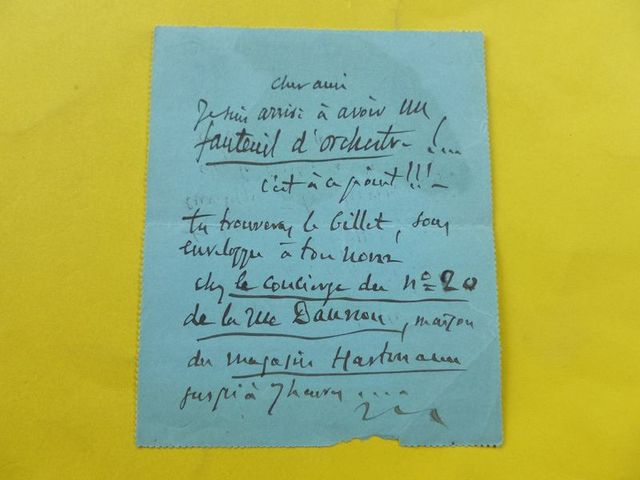 cher ami
Je suis arrivé à avoir un
fauteuil d'orchestre !...
c'est à ce point !!!
tu trouveras le billet, sous
enveloppe à ton nom
chez le concierge du nº 20
de la rue Daunou, maison
du magasin Hartmann
jusqu'à 7 heures ....